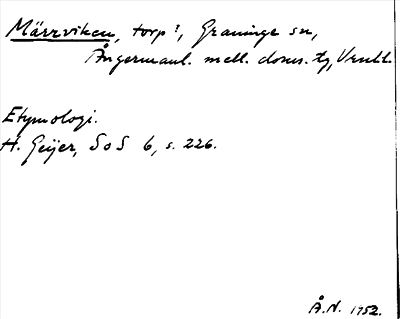 Märrviken, torp?, Graninge sn,
Ångermanl. mell. doms. tg, Vnrl.
Etymologi.
H. Geijer, SoS 6, s. 226.
Å.N. 1952.